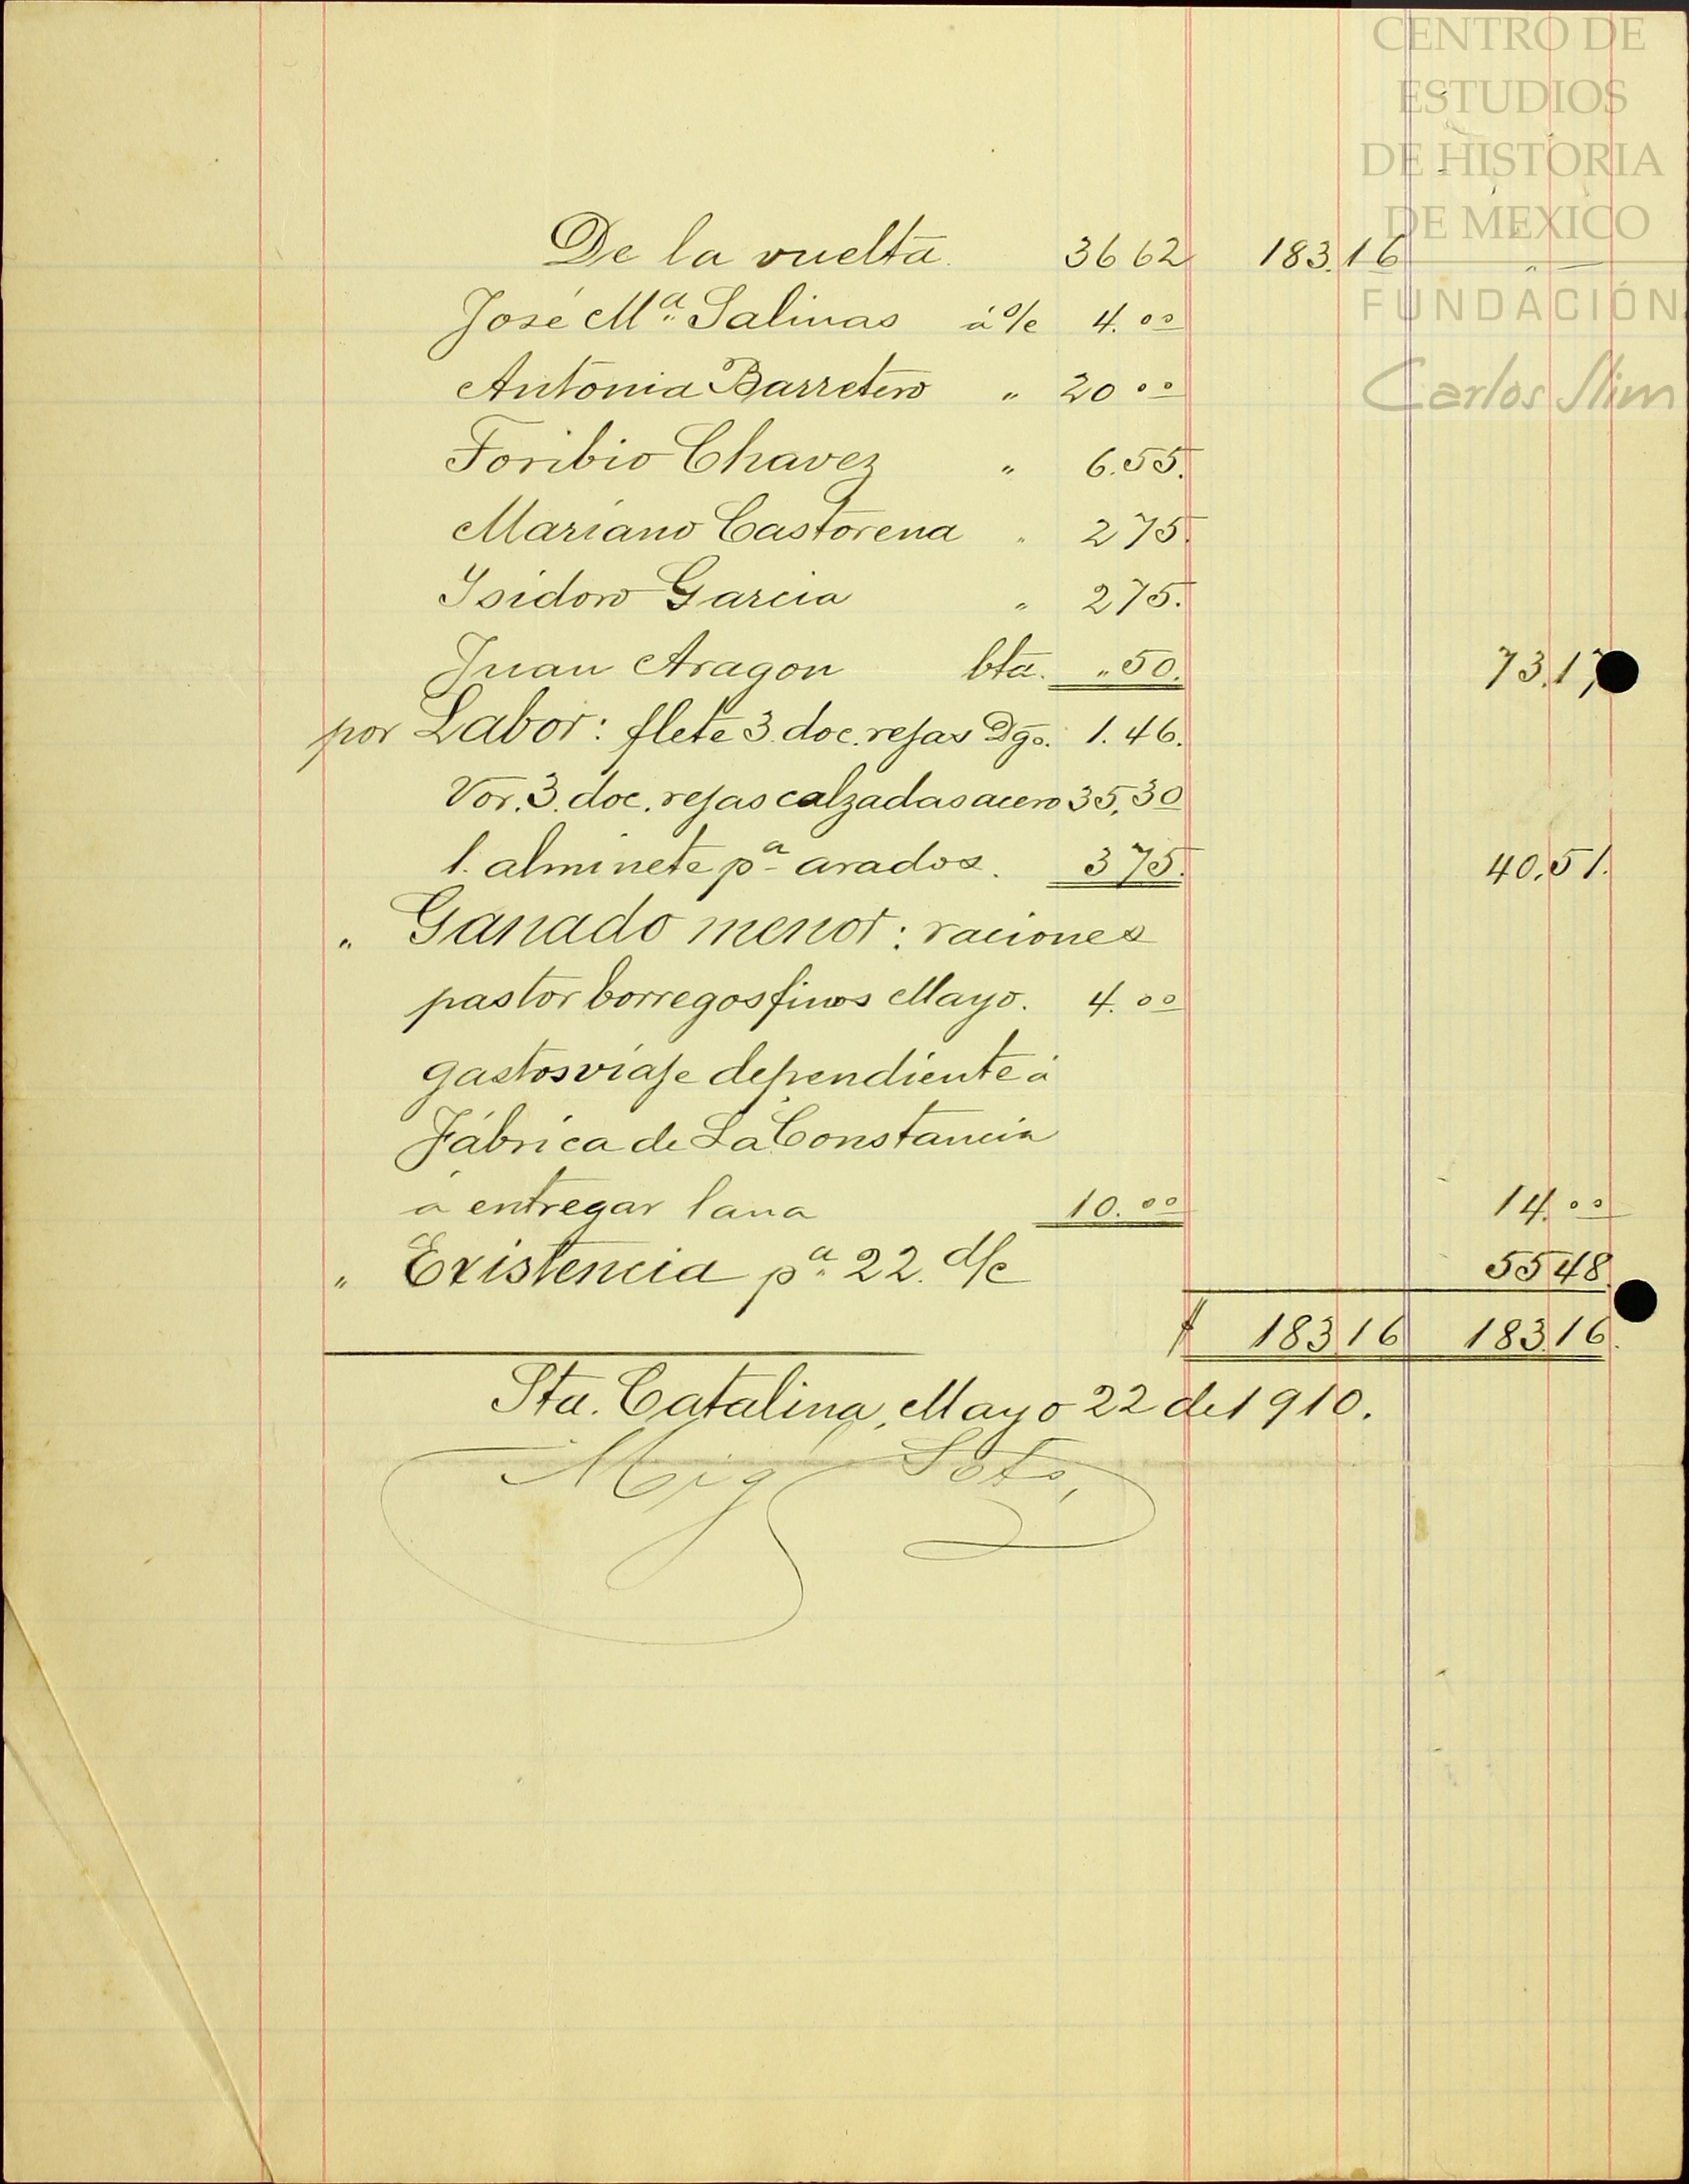 CENTRO DE
ESTUDIOS
DE HISTORIA
DE MEXICO
FUNDACIÓN
Carlos Slim
De la vuelta. 36 62 183.16
José Mª Salinas á o/c 4.00
Antonia Barretero " 20 00
Toribio Chavez " 6.55.
Mariano Castorena " 2 75.
Isidoro Garcia " 2 75.
Juan Aragon bta. " 50. 73.17
por Labor: flete 3 doc. rejas Dgo. 1.46.
Vor. 3. doc. rejas calzadas acero 35,30
1. alminete pª arados. 3 75. 40.51.
" Ganado menor: raciones
pastor borregos finos Mayo. 4.00
gastos viaje dependiente á
Fábrica de La Constancia
á entregar lana 10.00 14.00
" Existencia pª 22. d/c 55 48.
$ 183 16 183.16.
Sta. Catalina, Mayo 22 de 1910.
Mig Soto,